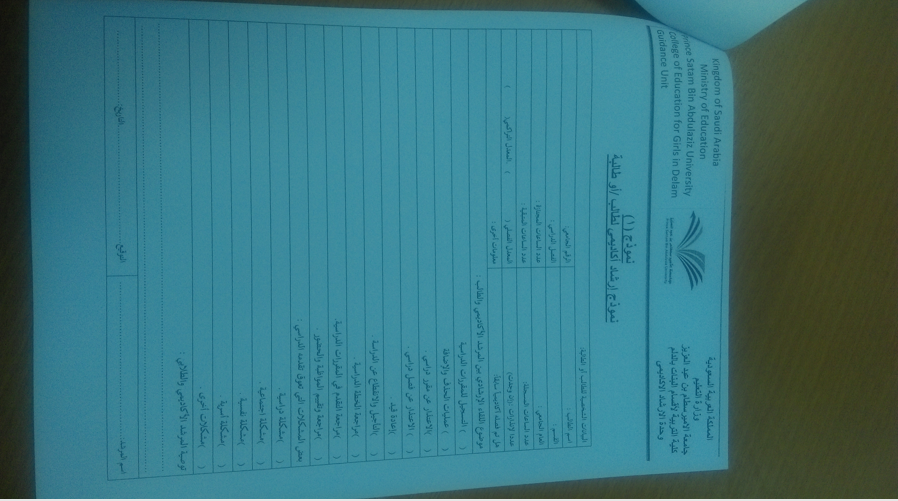 Kingdom of Saudi Arabia
Ministry of Education
Prince Satam Bin Abdulaziz University
College of Education for Girls in Delam
Guidance Unit
المملكة العربية السعودية
وزارة التعليم
جامعة الأمير سطام بن عبد العزيز
كلية التربية لأقسام البنات بالدلم
وحدة الإرشاد الأكاديمي
نموذج (١)
نموذج إرشاد أكاديمي لطالب /أو طالبة
البيانات الشخصية للطالب أو الطالبة
اسم الطالب: الرقم الجامعي:
القسم : الفصل الدراسي :
العام الجامعي عدد الساعات المجتازة :
عدد الساعات المسجلة: عدد الساعات المتبقية :
عدد( الإنذارات ) المعدل الفصلي ( ) المعدل التراكمي( )
معلومات أخرى :
موضوع اللقاء الإرشادي بين المرشد الأكاديمي والطالب :
( ) التسجيل للمقررات الدراسية
( ) عمليات الحذف والإضافة
( ) الاعتذار عن مقرر دراسي .
( ) الاعتذار عن فصل دراسي .
( ) إعادة قيد
( ) التأجيل والانقطاع عن الدراسة .
( ) مراجعة الخطة الدراسية .
( ) مراجعة التقدم في المقررات الدراسية.
( ) مراجعة وتقييم المواظبة والحضور
بعض المشكلات التي تعوق تقدمه الدراسي :
( ) مشكلة دراسية .
( ) مشكلة اجتماعية
( ) مشكلة نفسية
( ) مشكلة أسرية
( ) مشكلات أخرى .
توصية المرشد الأكاديمي والطلابي :
اسم المرشد التوقيع التاريخ: